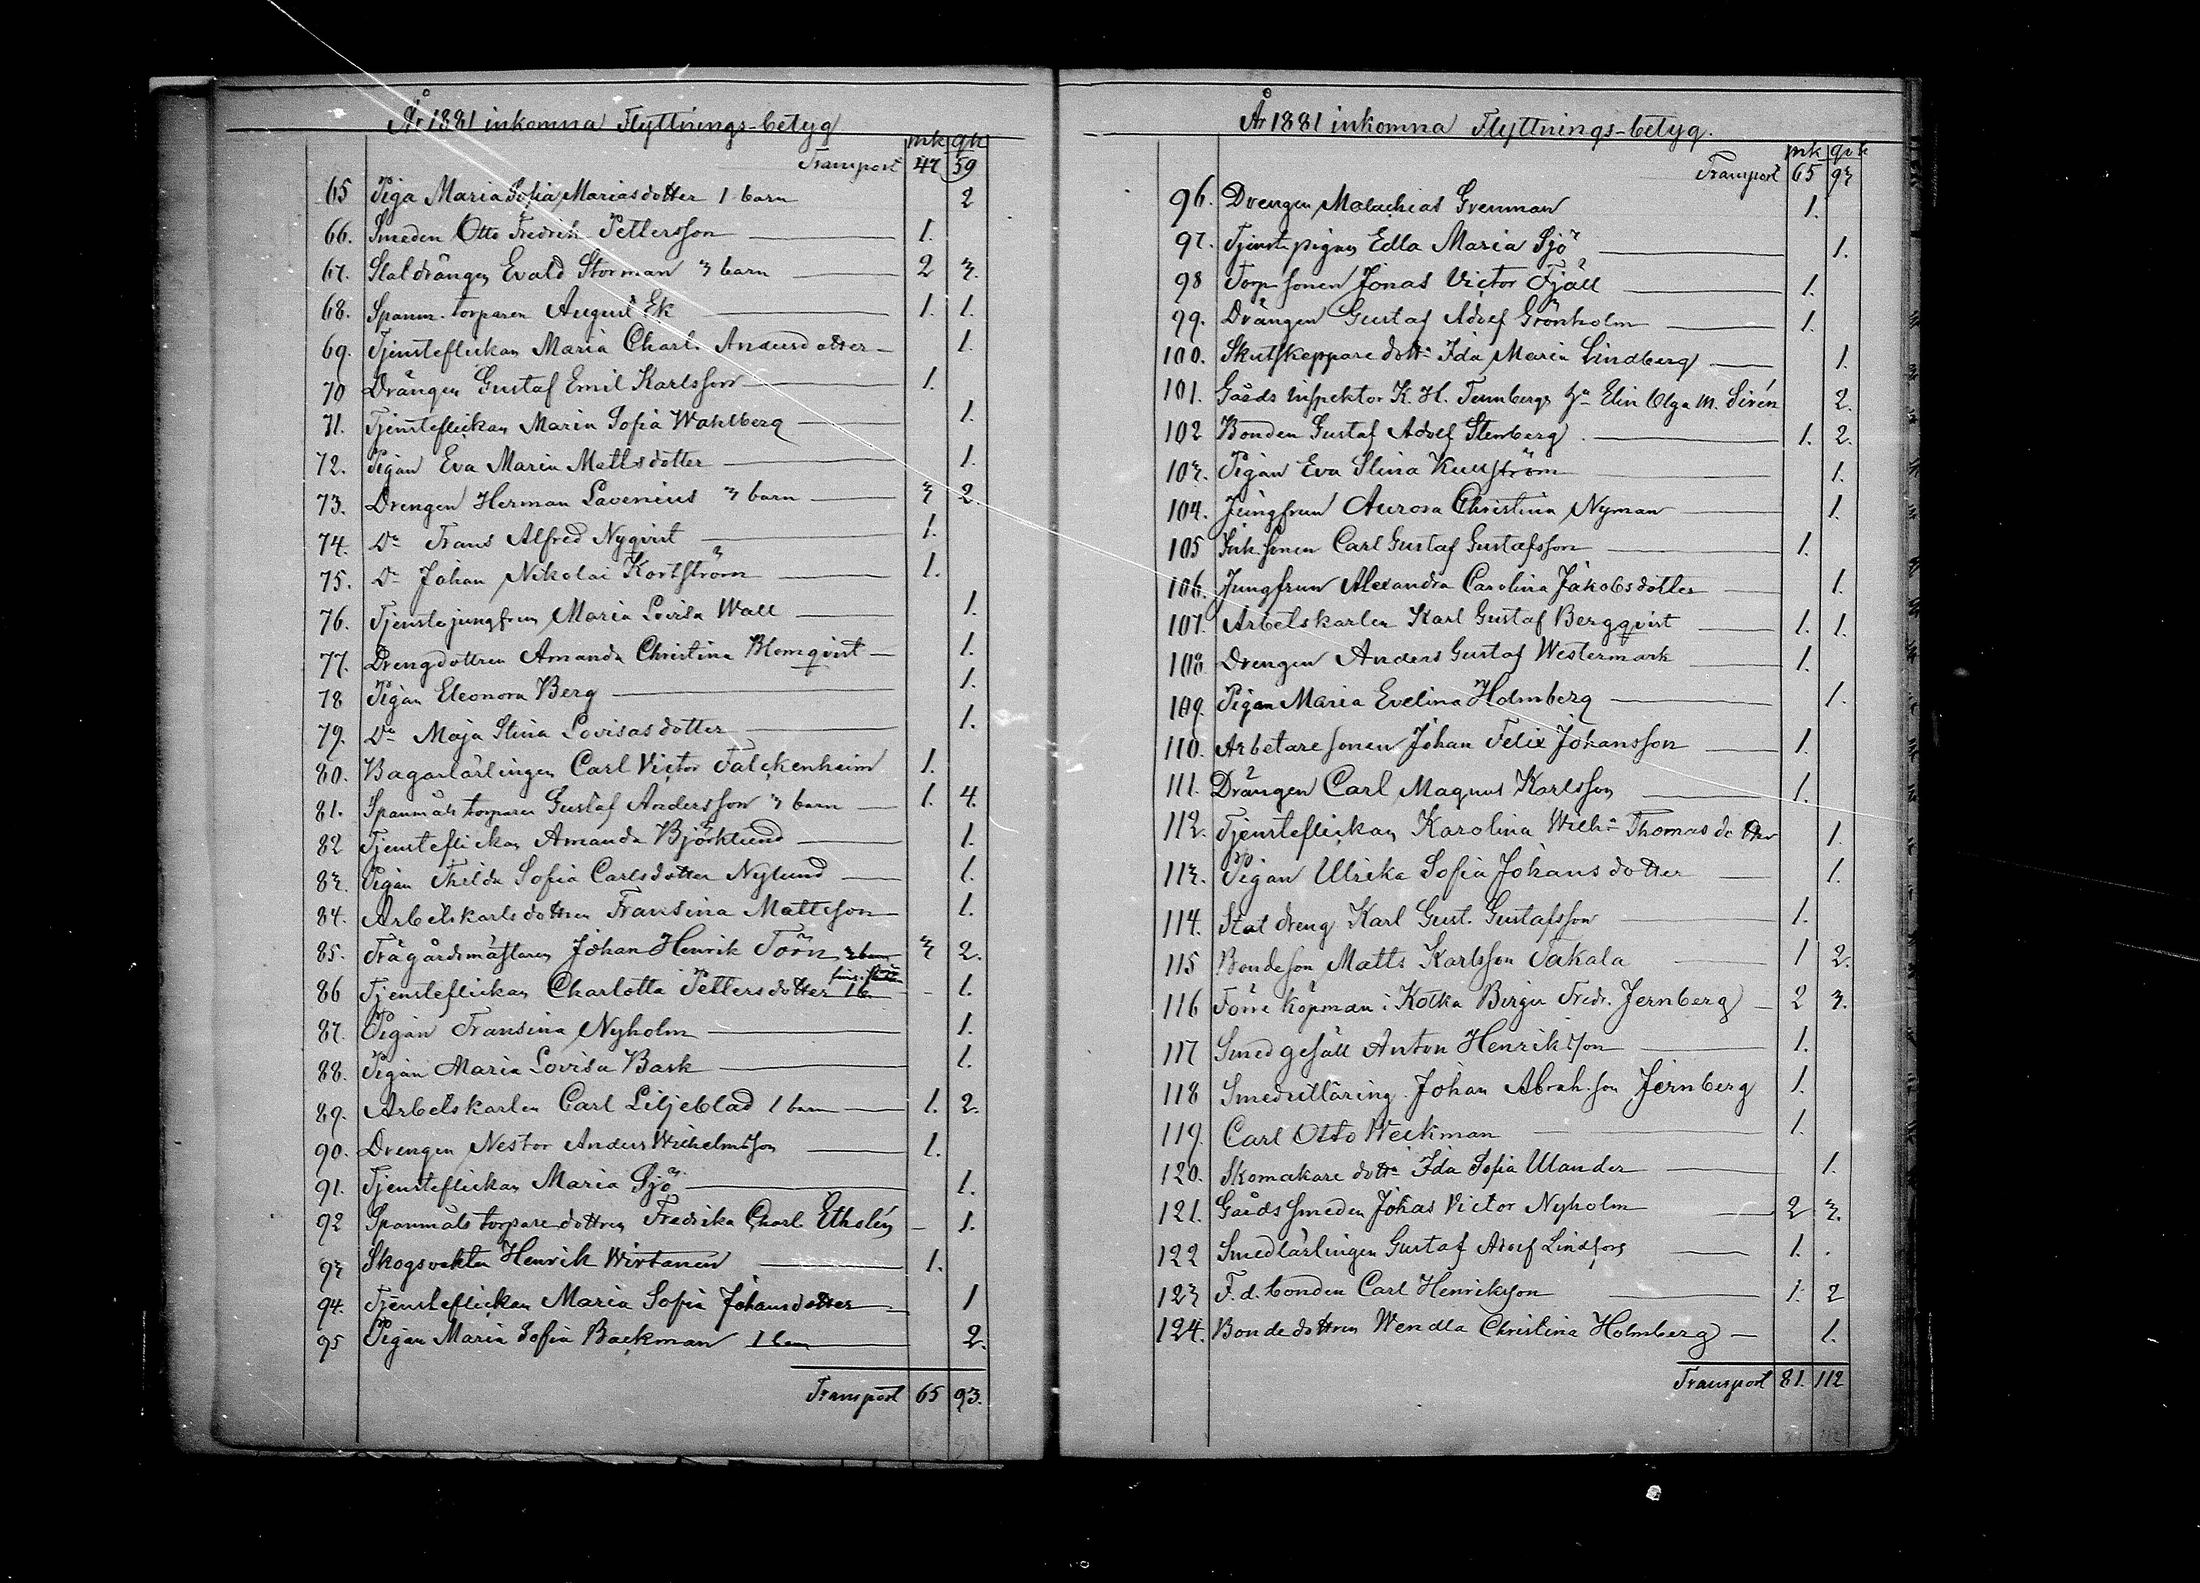 År 1881 inkomna Flyttnings-betyg
mk qk
Transport 47 59
65 Piga Maria Sofia Mariasdotter 1 barn 2
66. Smeden Otto Fredrik Pettersson 1.
67. Staldrängen Evald Storman 3 barn 2 3.
68. Spanm. torparen August Ek 1. 1.
69. Tjensteflickan Maria Charl. Andersdotter 1.
70 Drängen Gustaf Emil Karlsson 1.
71. Tjensteflickan Maria Sofia Wahlberg 1.
72. Pigan Eva Maria Mattsdotter 1.
73. Drengen Herman Lavenius 3 barn 3 2.
74. Do Frans Alfred Nyqvist 1.
75. Do Johan Nikolai Kortström 1.
76. Tjenstejungfrun Maria Lovisa Wall 1.
77. Drengdottren Amanda Christina Blomqvist 1.
78 Pigan Eleonora Berg 1.
79. Do Maja Stina Lovisasdotter 1.
80. Bagarlärlingen Carl Victor Falckenheim 1.
81. Spanmåls torparen Gustaf Andersson 3 barn 1. 4.
82 Tjensteflickan Amanda Björklund 1.
83. Pigan Thilda Sofia Carlsdotter Nylund 1.
84. Arbetskarlsdottren Fransina Mattsson 1.
85. Trägårdsmästaren Johan Henrik Törn 3 barn 3 2.
86 Tjensteflickan Charlotta Pettersdotter 1 b. 1.
87. Pigan Fransina Nyholm 1.
88. Pigan Maria Lovisa Bask 1.
89. Arbetskarlen Carl Liljeblad 1 barn 1. 2.
90. Drengen Nestor Anders Wilhelmsson 1.
91. Tjensteflickan Maria Sjö 1.
92 Spanmåls torparedottren Fredrika Charl. Etholén 1.
93 Skogsvakten Henrik Wirtanen 1.
94. Tjensteflickan Maria Sofia Johansdotter 1
95 Pigan Maria Sofia Backman 1 barn 2.
Transport 65 93.
År 1881 inkomna Flyttnings-betyg.
mk qvk
Transport 65 93
96. Drengen Malachias Grenman 1.
97. Tjenstepigan Edla Maria Sjö 1.
98 Torpsonen Jonas Victor Fjäll 1.
99. Drängen Gustaf Adolf Grönholm 1.
100. Skutskeppare dottr Ida Maria Lindberg 1.
101. Gårds inspektor K. H. Tennbergs Elin Olga M. Sirén 2.
102 Bonden Gustaf Adolf Stenberg 1. 2.
103. Pigan Eva Stina 1.
104. Jungfrun Aurora Christina Nyman 1.
105 Inh. sonen Carl Gustaf Gustafsson 1.
106. Jungfrun Alexandra Carolina Jakobsdotter 1.
107. Arbetskarlen Karl Gustaf Bergqvist 1. 1.
108. Drengen Anders Gustaf Westermark 1.
109. Pigan Maria Evelina Holmberg 1.
110. Arbetaresonen Johan Felix Johansson 1.
111. Drängen Carl Magnus Karlsson 1.
112. Tjensteflickan Karolina Wilh:a Thomasdotter 1.
113. Pigan Ulrika Sofia Johansdotter 1.
114. Stal dreng Karl Gust. Gustafsson 1.
115 Bondeson Matts Karlsson Takala 1 2.
116 Förre köpman i Kotka Birger Fredr. Jernberg 2 3.
117 Smedgesäll Anton Henriksson 1.
118 Johan Abrah.son Jernberg 1.
119. Carl Otto Weckman 1.
120. Skomakare dottr Ida Sofia Ulander 1.
121. Gårdssmeden Johas Victor Nyholm 2 3.
122 Smedlärlingen Gustaf Adolf Lindfors 1.
123 F. d. bonden Carl Henriksson 1. 2
124. Bondedottren Wendla Christina Holmberg 1.
Transport 81. 112